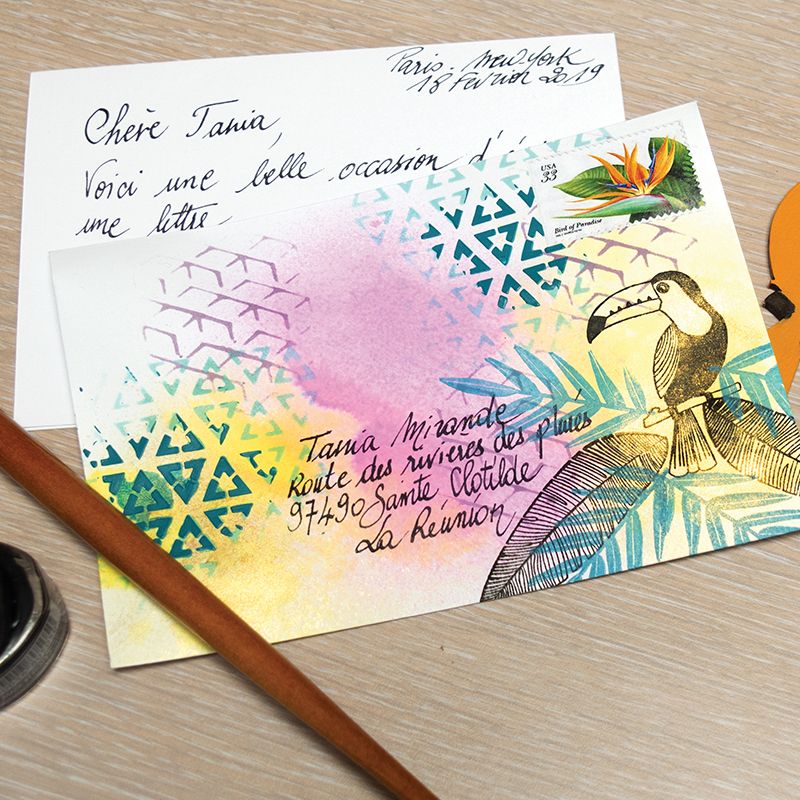 Paris - New-York
18 Février 2019
Chère Tania,
Voici une belle occasion d'é
une lettre
USA
33
Bird of Paradise
Tania Mirande
Route des rivières des pluies
97490 Sainte Clotilde
La Réunion